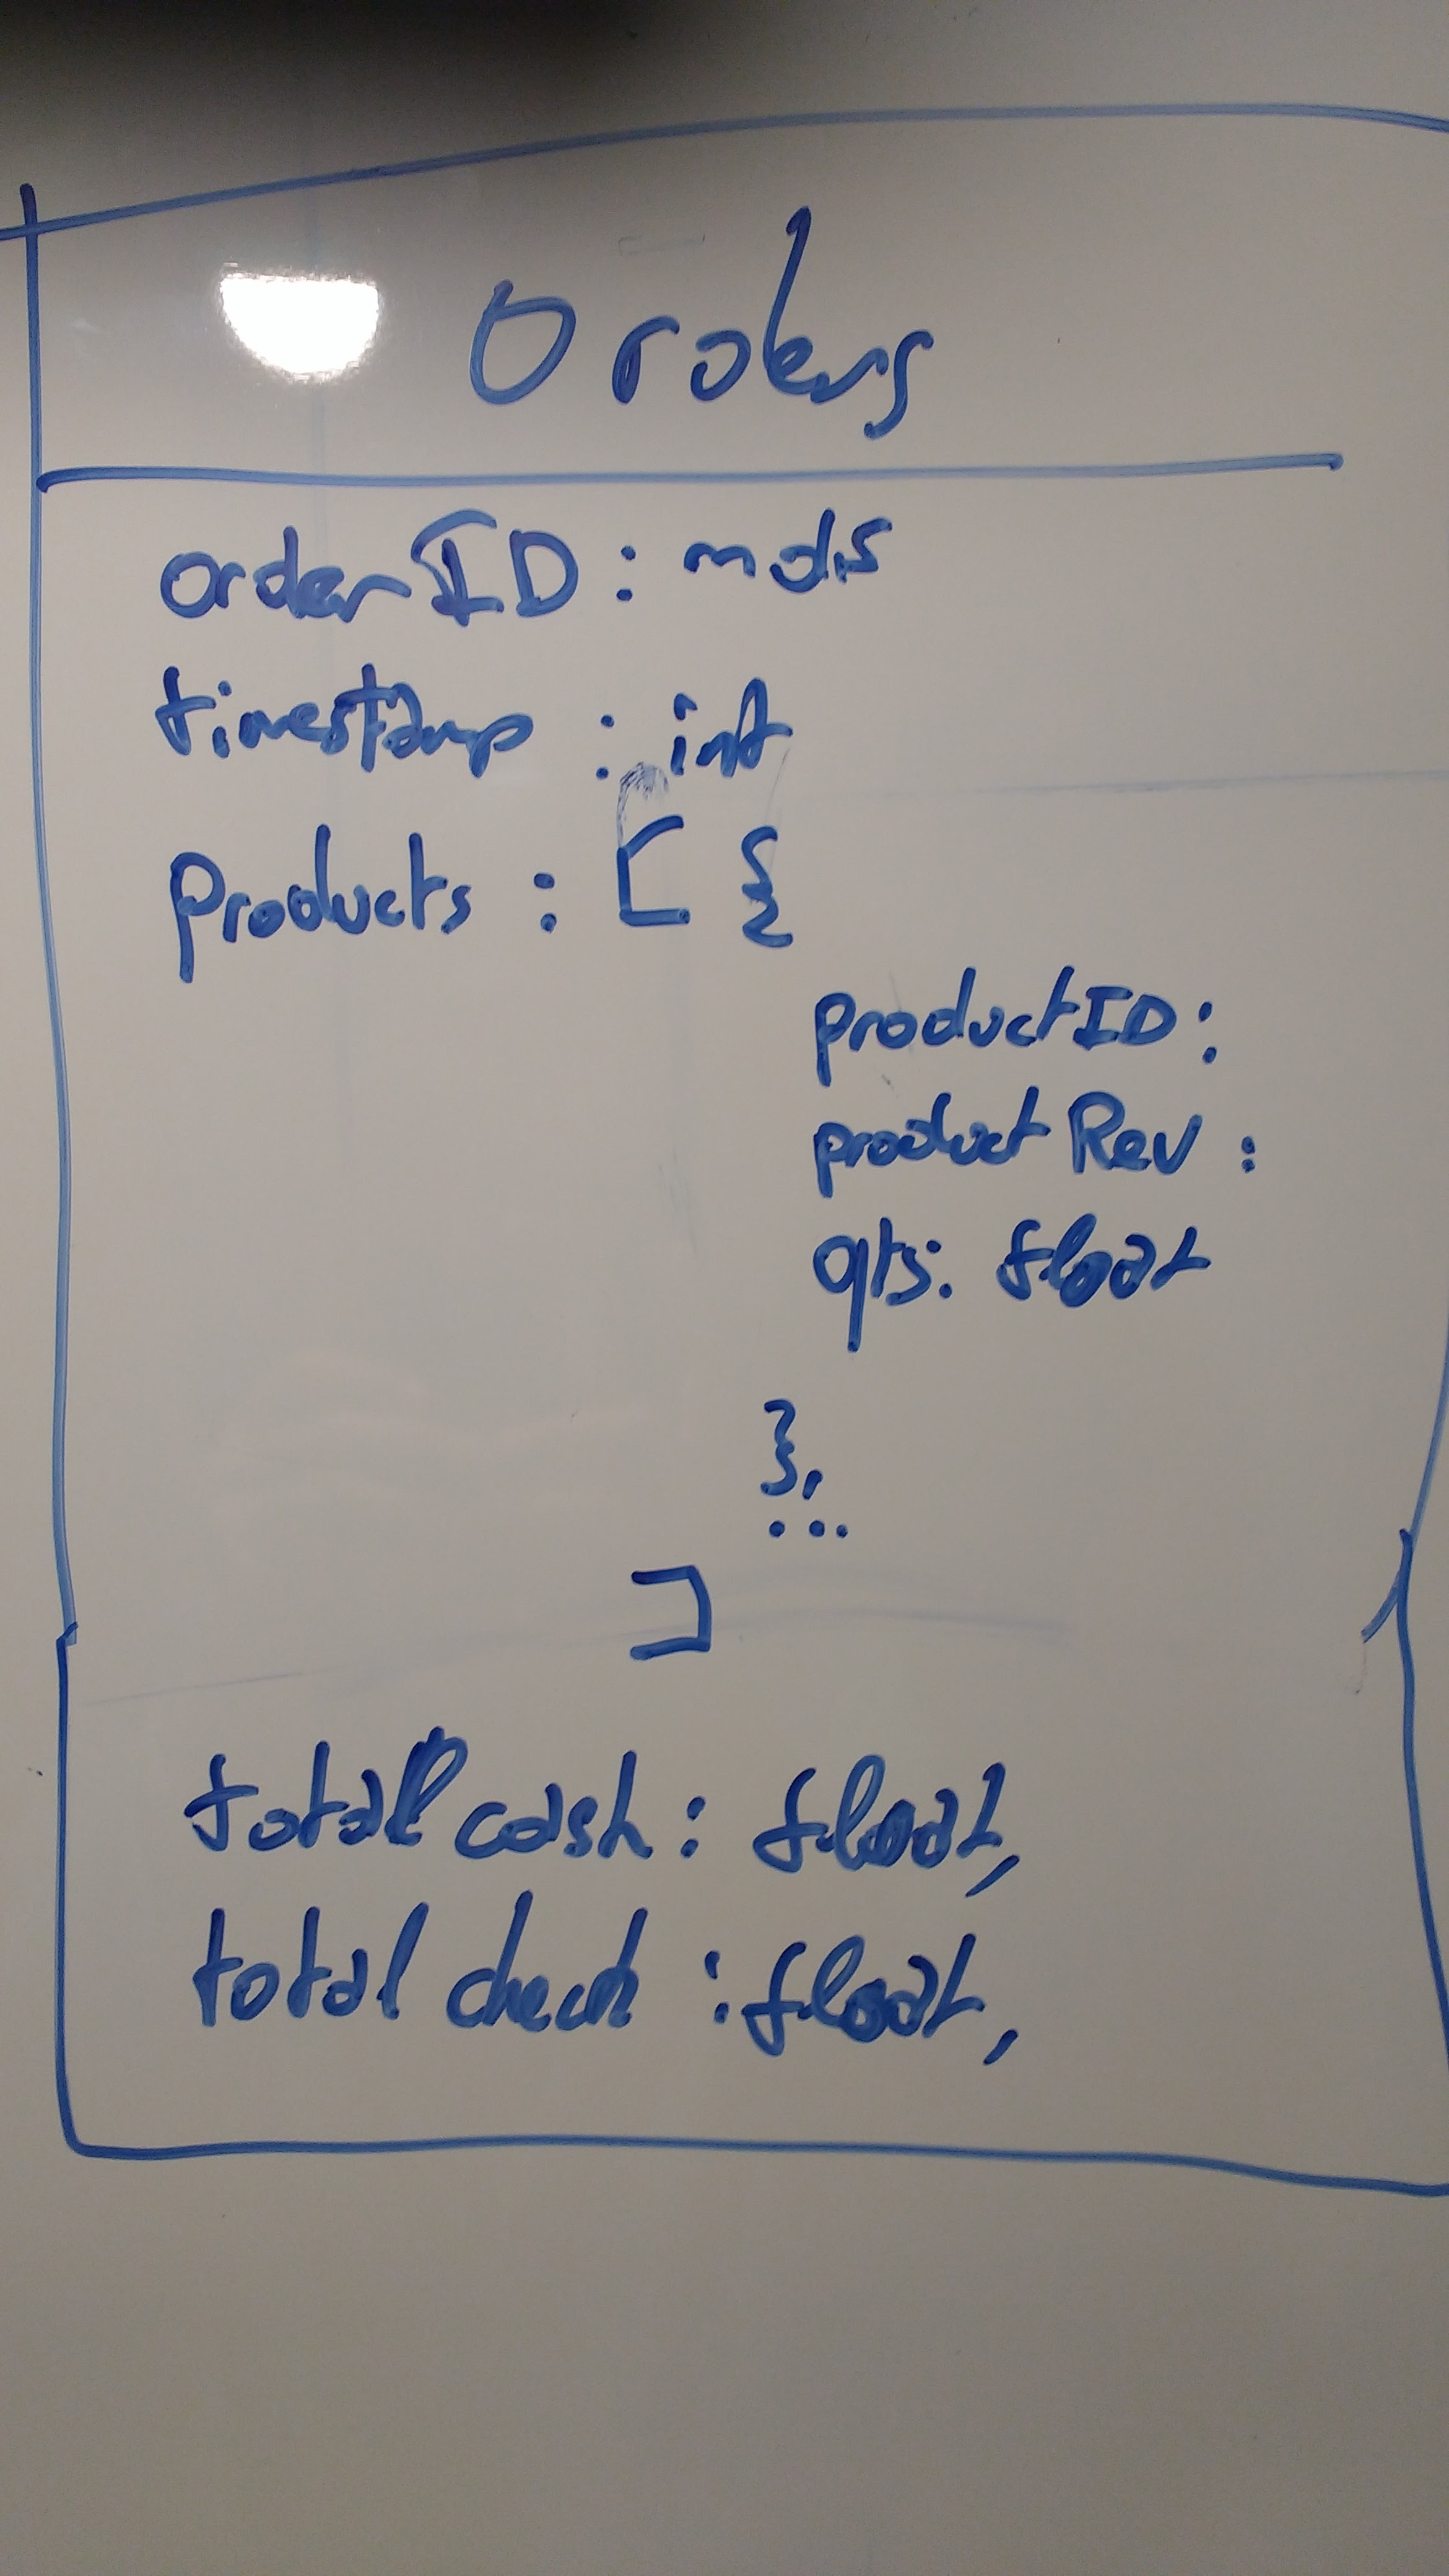 Orders
orderID : md5
timestamp : int
products : [ {
productID :
product Rev :
qts: float
},
...
]
total cash : float,
total check : float,